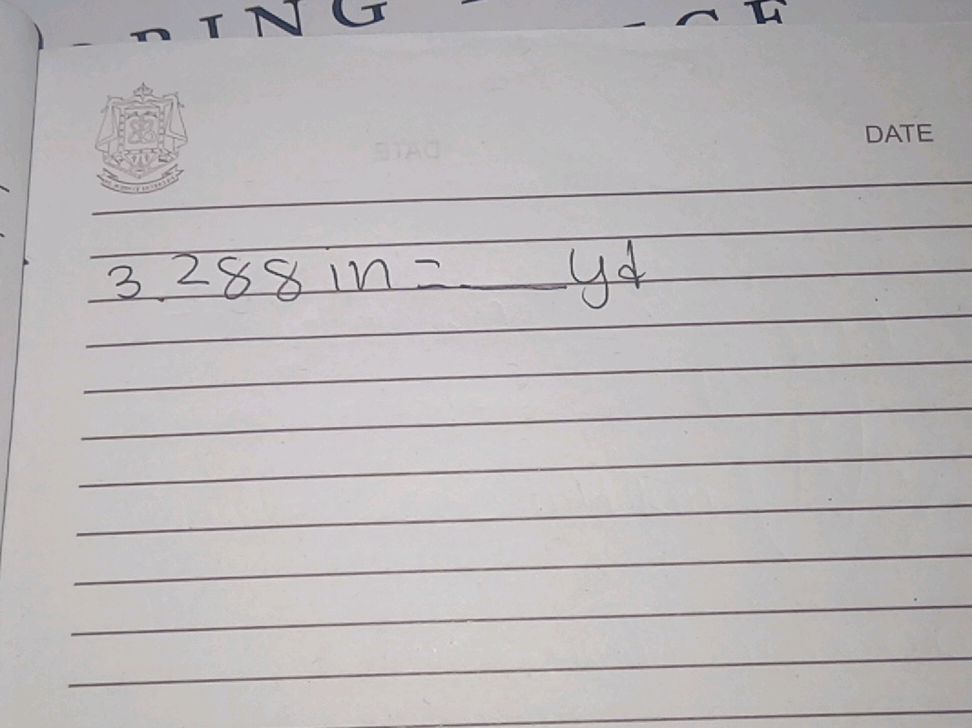 RING
CE
DATE
3. 288 in = ____ yd